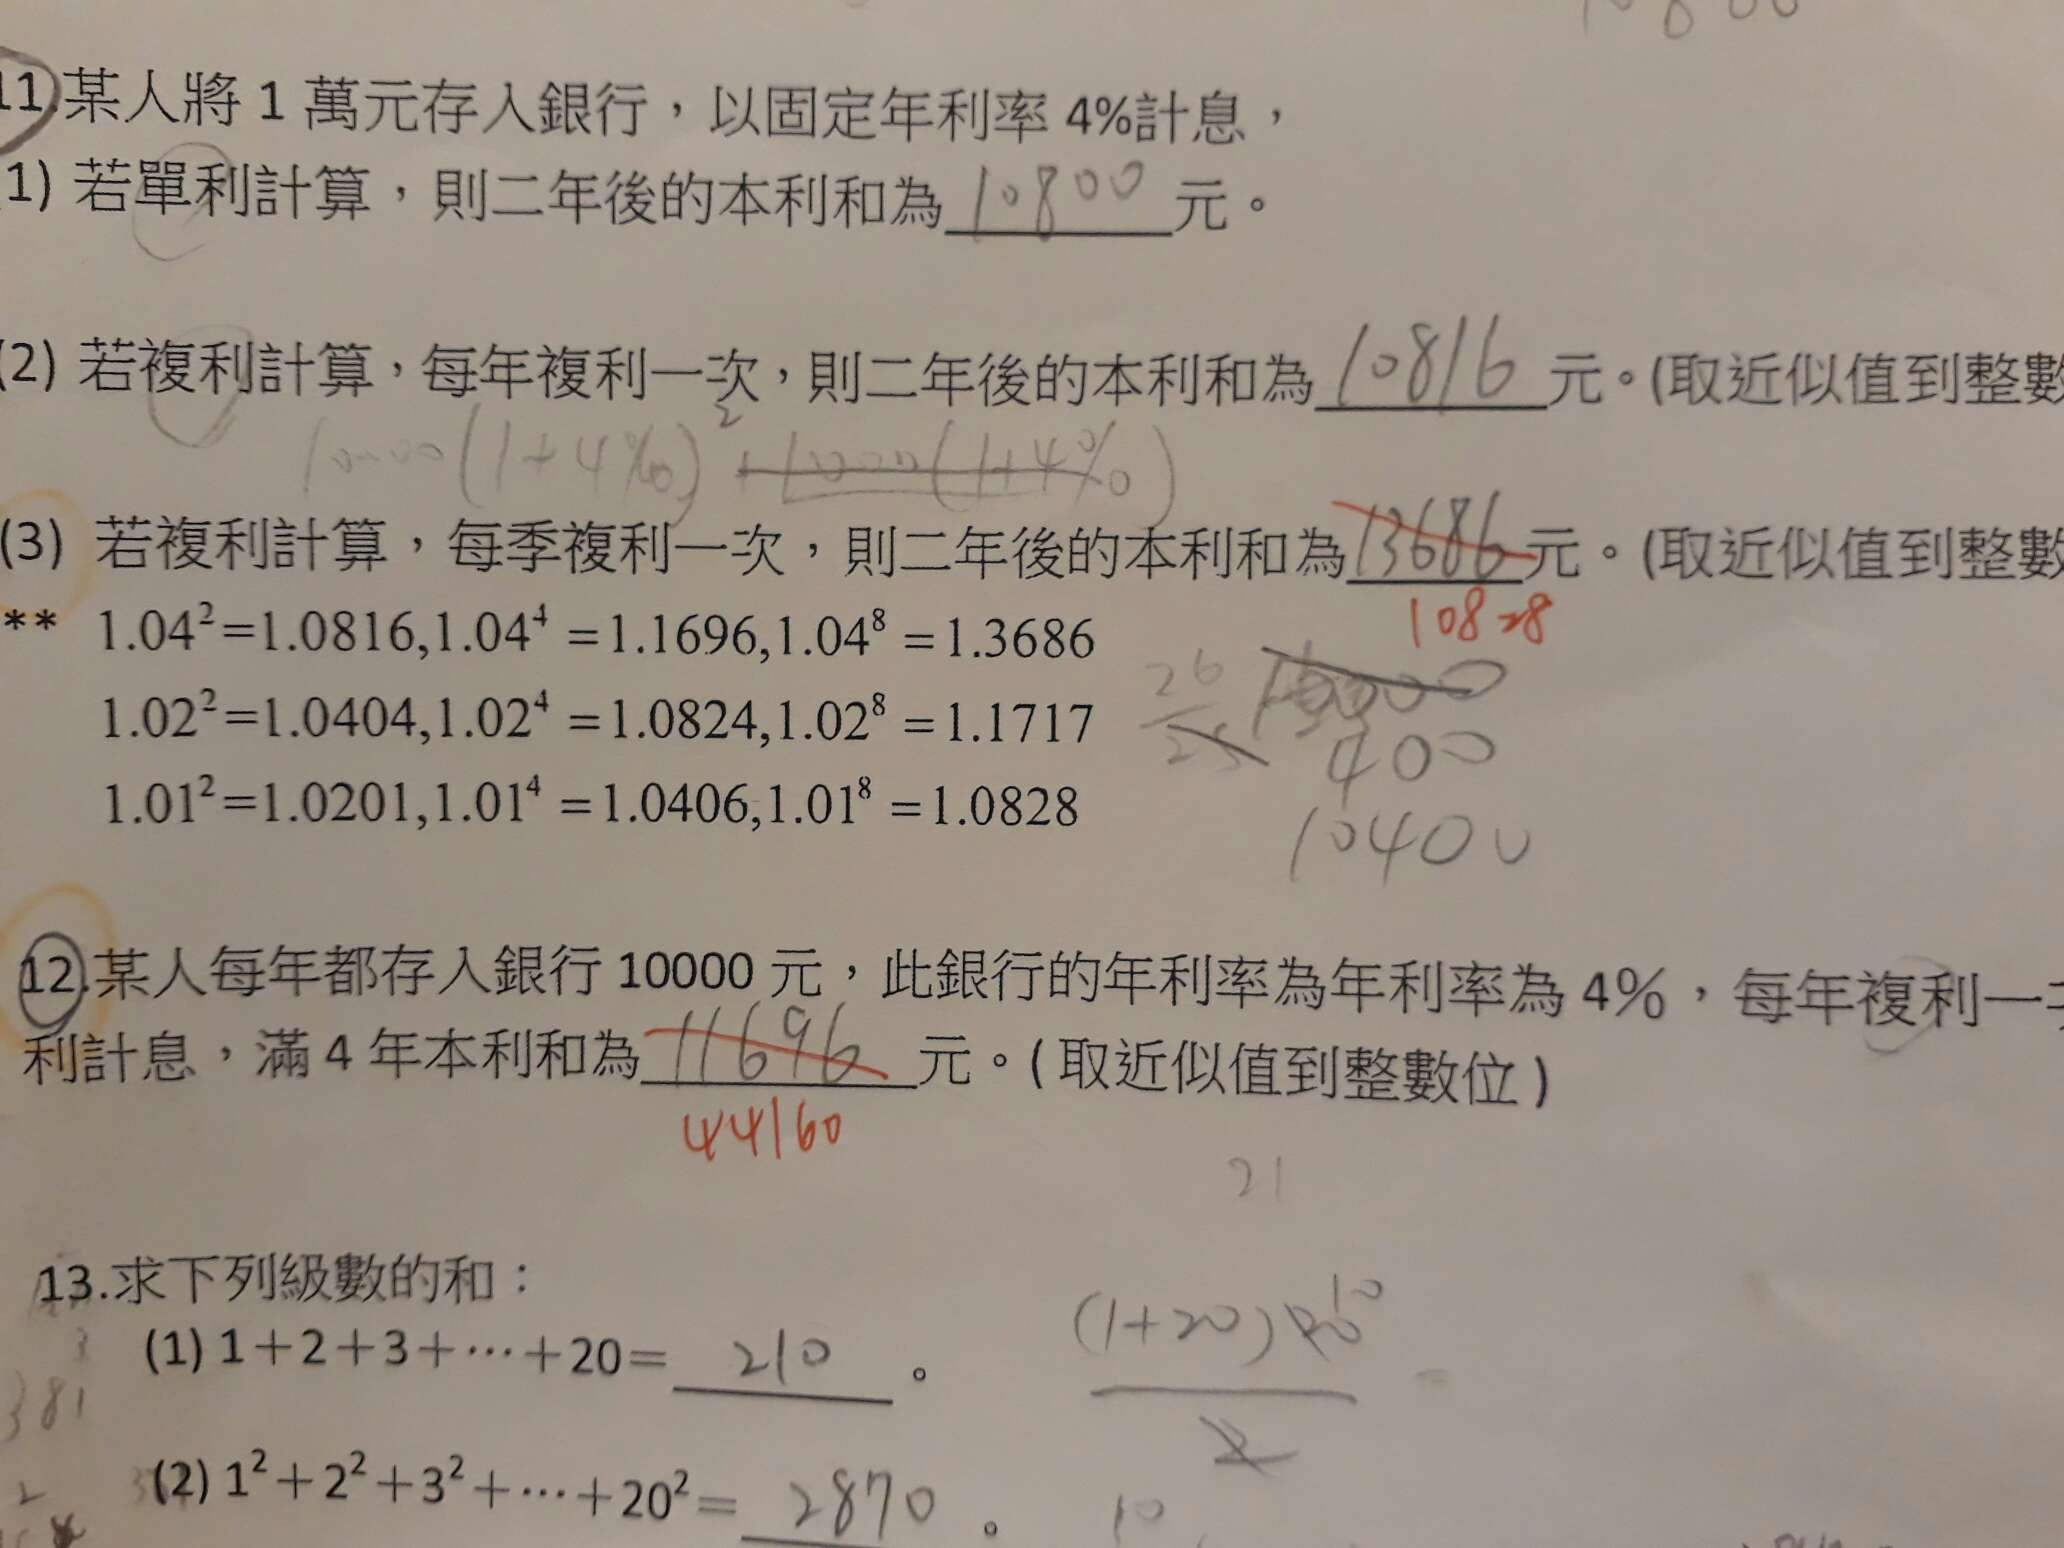 10800
11.某人將 1 萬元存入銀行，以固定年利率 4%計息，
1) 若單利計算，則二年後的本利和為 10800 元。
(2) 若複利計算，每年複利一次，則二年後的本利和為 10816 元。(取近似值到整數
10000(1+4%)² + 10000(1+4%)
(3) 若複利計算，每季複利一次，則二年後的本利和為 13686 元。(取近似值到整數
10828
** 1.04²=1.0816,1.04⁴ =1.1696,1.04⁸ =1.3686
26
25
1.02²=1.0404,1.02⁴ =1.0824,1.02⁸ =1.1717
400
1.01²=1.0201,1.01⁴ =1.0406,1.01⁸ =1.0828
10400
12.某人每年都存入銀行 10000 元，此銀行的年利率為年利率為 4%，每年複利一
利計息，滿 4 年本利和為 11696 元。( 取近似值到整數位 )
44160
21
13.求下列級數的和：
(1) 1＋2＋3＋⋯＋20＝ 210 。
(1+20) 20 10
2
381
(2) 1²＋2²＋3²＋⋯＋20²＝ 2870 。
10